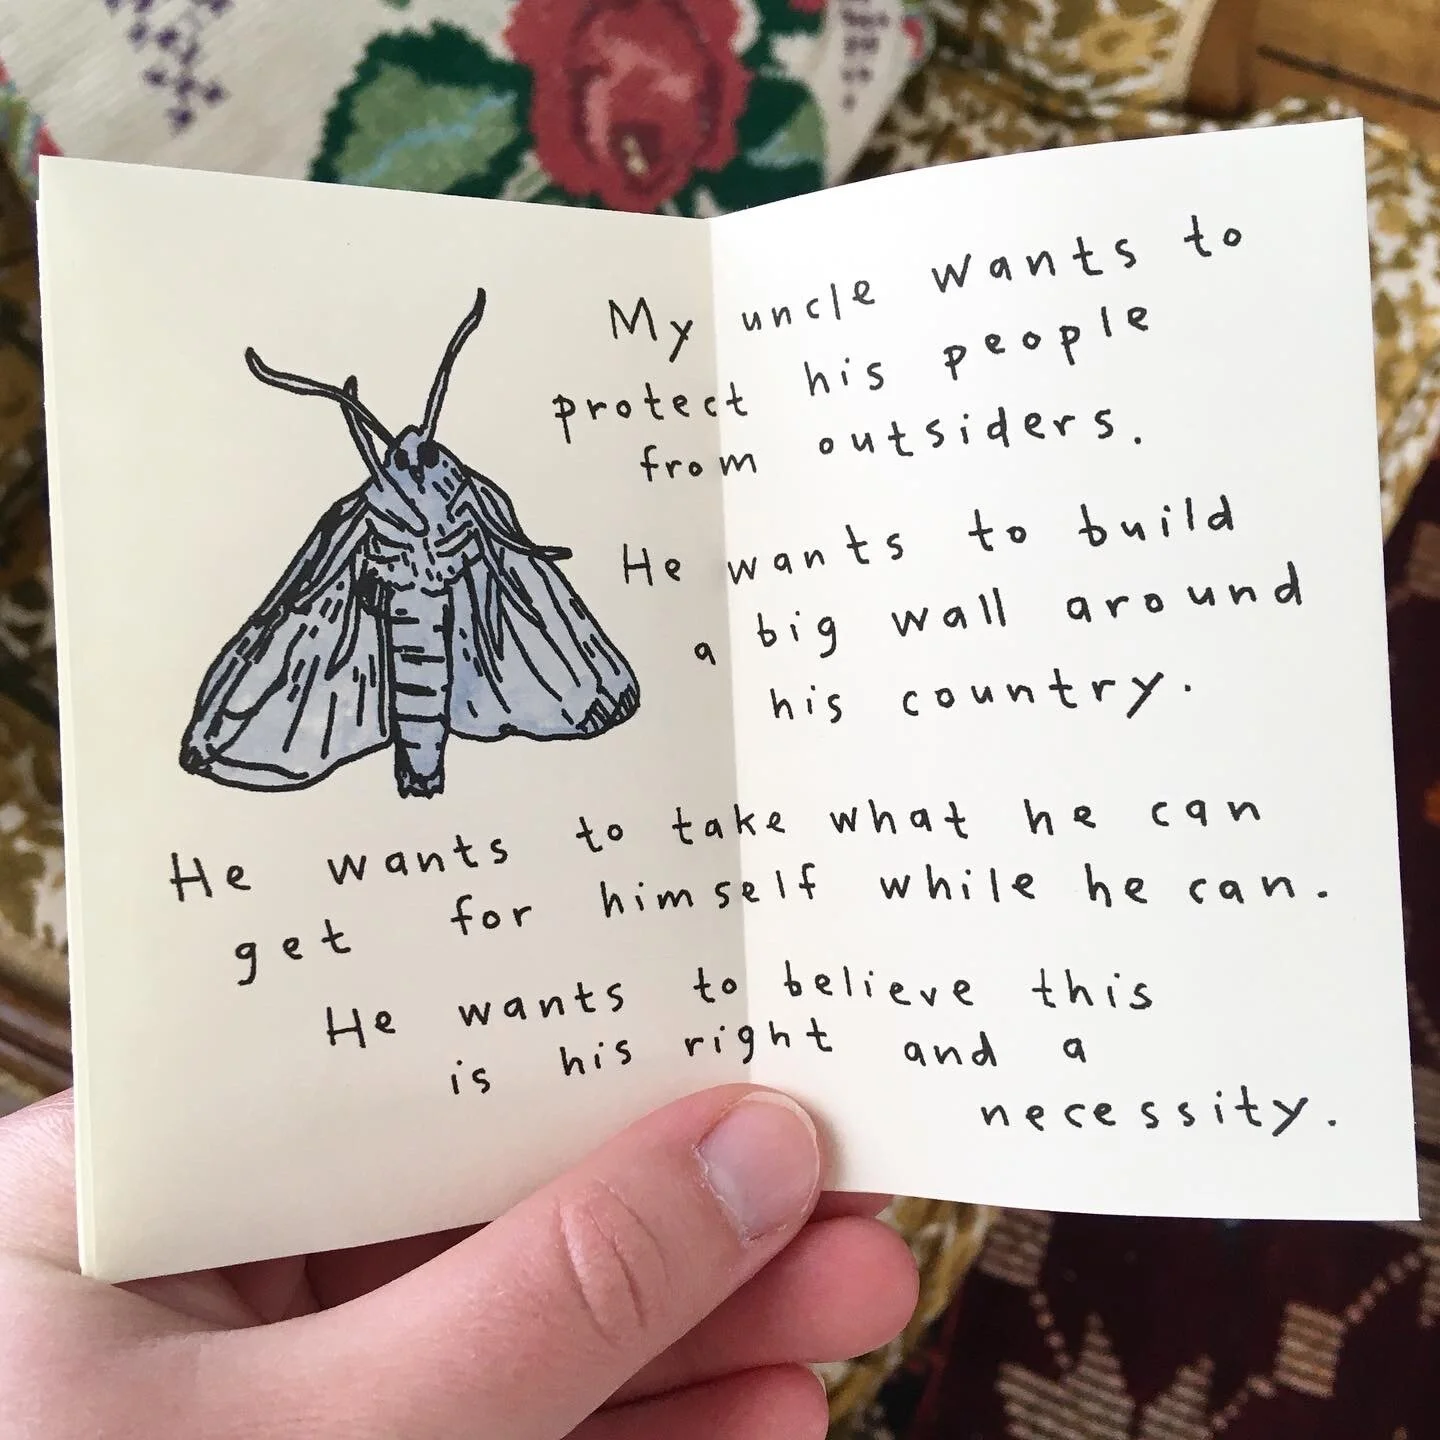 My uncle wants to
protect his people
from outsiders.
He wants to build
a big wall around
his country.
He wants to take what he can
get for himself while he can.
He wants to believe this
is his right and a
necessity.